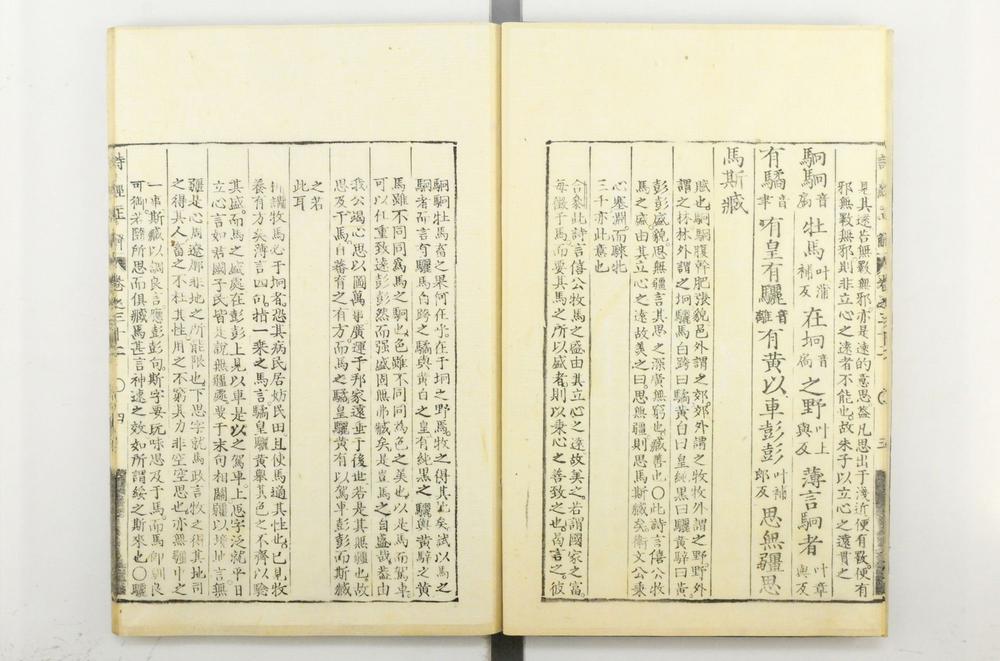 見其遠若無斁無邪亦是遠的意思葢凡思出于淺近便有斁便有
邪無斁無邪則非立心之遠者不能也故朱子以立心之遠貫之
駉駉音扃牡馬叶蒲補反在坰音扃之野叶上與反薄言駉者叶章與反
有驈音聿有皇有驪音離有黃以車彭彭叶補郎反思無疆思
馬斯臧
賦也駉駉腹幹肥張貌邑外謂之郊郊外謂之牧牧外謂之野野外
謂之林林外謂之坰驪馬白跨曰驈黃白曰皇純黑曰驪黃騂曰黃
彭彭盛貌思無疆言其思之深廣無窮也臧善也○此詩言僖公牧
馬之盛由其立心之遠故美之曰思無疆則思馬斯臧矣衛文公秉
心塞淵而騋牝
三千亦此意也
合參此詩言僖公牧馬之盛由其立心之遠故美之若謂國家之富
每徵于馬而要其馬之所以盛者則以秉心之善致之也曷言之彼
駉駉牡馬畜之果何在乎在于坰之野焉牧之得其地矣試以馬之
駉者而言有驪馬白跨之驈與黃白之皇有純黑之驪與黃騂之黃
馬雖不同同為馬之駉也色雖不同同為色之美也以是馬而駕車
可以任重致遠彭彭然而强盛罔無弗臧矣是豈馬之自盛哉葢由
我公竭心思以圖萬事廣運于邦家遠垂于後世若是其無疆也故
思及于馬而蕃育之有方而馬之驈皇驪黃有以駕車彭彭而斯臧
之若
此耳
析講牧馬必于坰者恐其病民居妨民田且使馬適其性也已見牧
養有方矣薄言四句指一乘之馬言驈皇驪黃舉其色之不齊以驗
其盛而馬之盛處在彭彭上見以車是以之駕車上思字泛就平日
立心言如君國子民皆是就無疆處要于末句相關疆以境地言無
疆是心周遼廓非地之所能限也下思字就馬政言牧之得其地司
之得其人畜之不杜其性用之不窮其力非空空思也亦無疆中之
一事斯臧以調良言應彭彭句斯字要玩味思及于馬而馬即馴良
可御若隨所思而俱臧焉甚言神速之效如所謂綏之斯來也○驪
詩經正解 卷之三十二 ○ 四